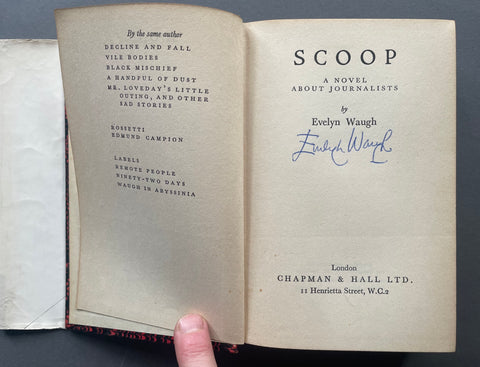 By the same author
DECLINE AND FALL
VILE BODIES
BLACK MISCHIEF
A HANDFUL OF DUST
MR. LOVEDAY'S LITTLE
OUTING, AND OTHER
SAD STORIES
ROSSETTI
EDMUND CAMPION
LABELS
REMOTE PEOPLE
NINETY-TWO DAYS
WAUGH IN ABYSSINIA
SCOOP
A NOVEL
ABOUT JOURNALISTS
by
Evelyn Waugh
Evelyn Waugh
London
CHAPMAN & HALL LTD.
11 Henrietta Street, W.C.2